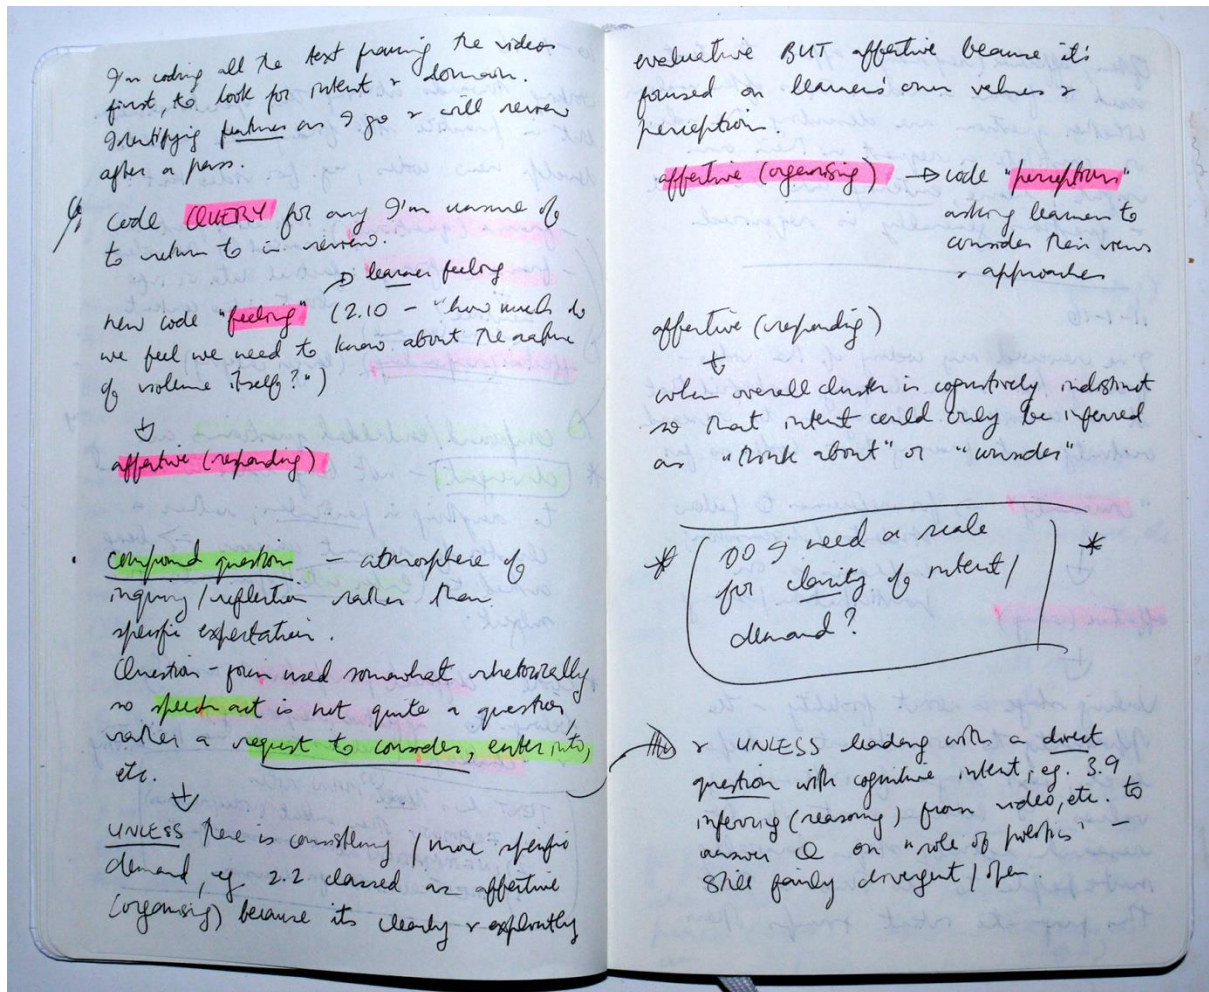 I'm coding all the text framing the videos
first, to look for intent & domain.
Identifying features as I go & will review
after a pass.
code QUERY for any I'm unsure of
to return to in review.
→ learner feeling
new code "feeling" (2.10 - "how much do
we feel we need to know about the nature
of volume itself?")
↓
affective (responding)
· compound question — atmosphere of
inquiry/reflection rather than
specific expectation.
Question-form used somewhat rhetorically
so speech act is not quite a question,
rather a request to consider, enter into,
etc.
↓
UNLESS there is consistency / more specific
demand, eg 2.2 classed as affective
(organising) because its clearly & explicitly
evaluative BUT affective because it's
focused on learners' own values &
perception.
affective (organising) → code "perceptions"
asking learners to
consider their views
& approaches
affective (responding)
↓
when overall cluster is cognitively indistinct
so that intent could only be inferred
as "think about" or "consider"
* DO I need a scale *
for clarity of intent/
demand?
& UNLESS leading with a direct
question with cognitive intent, eg. 3.9
inferring (reasoning) from video, etc. to
answer Q on "role of politics" —
still fairly divergent / open.